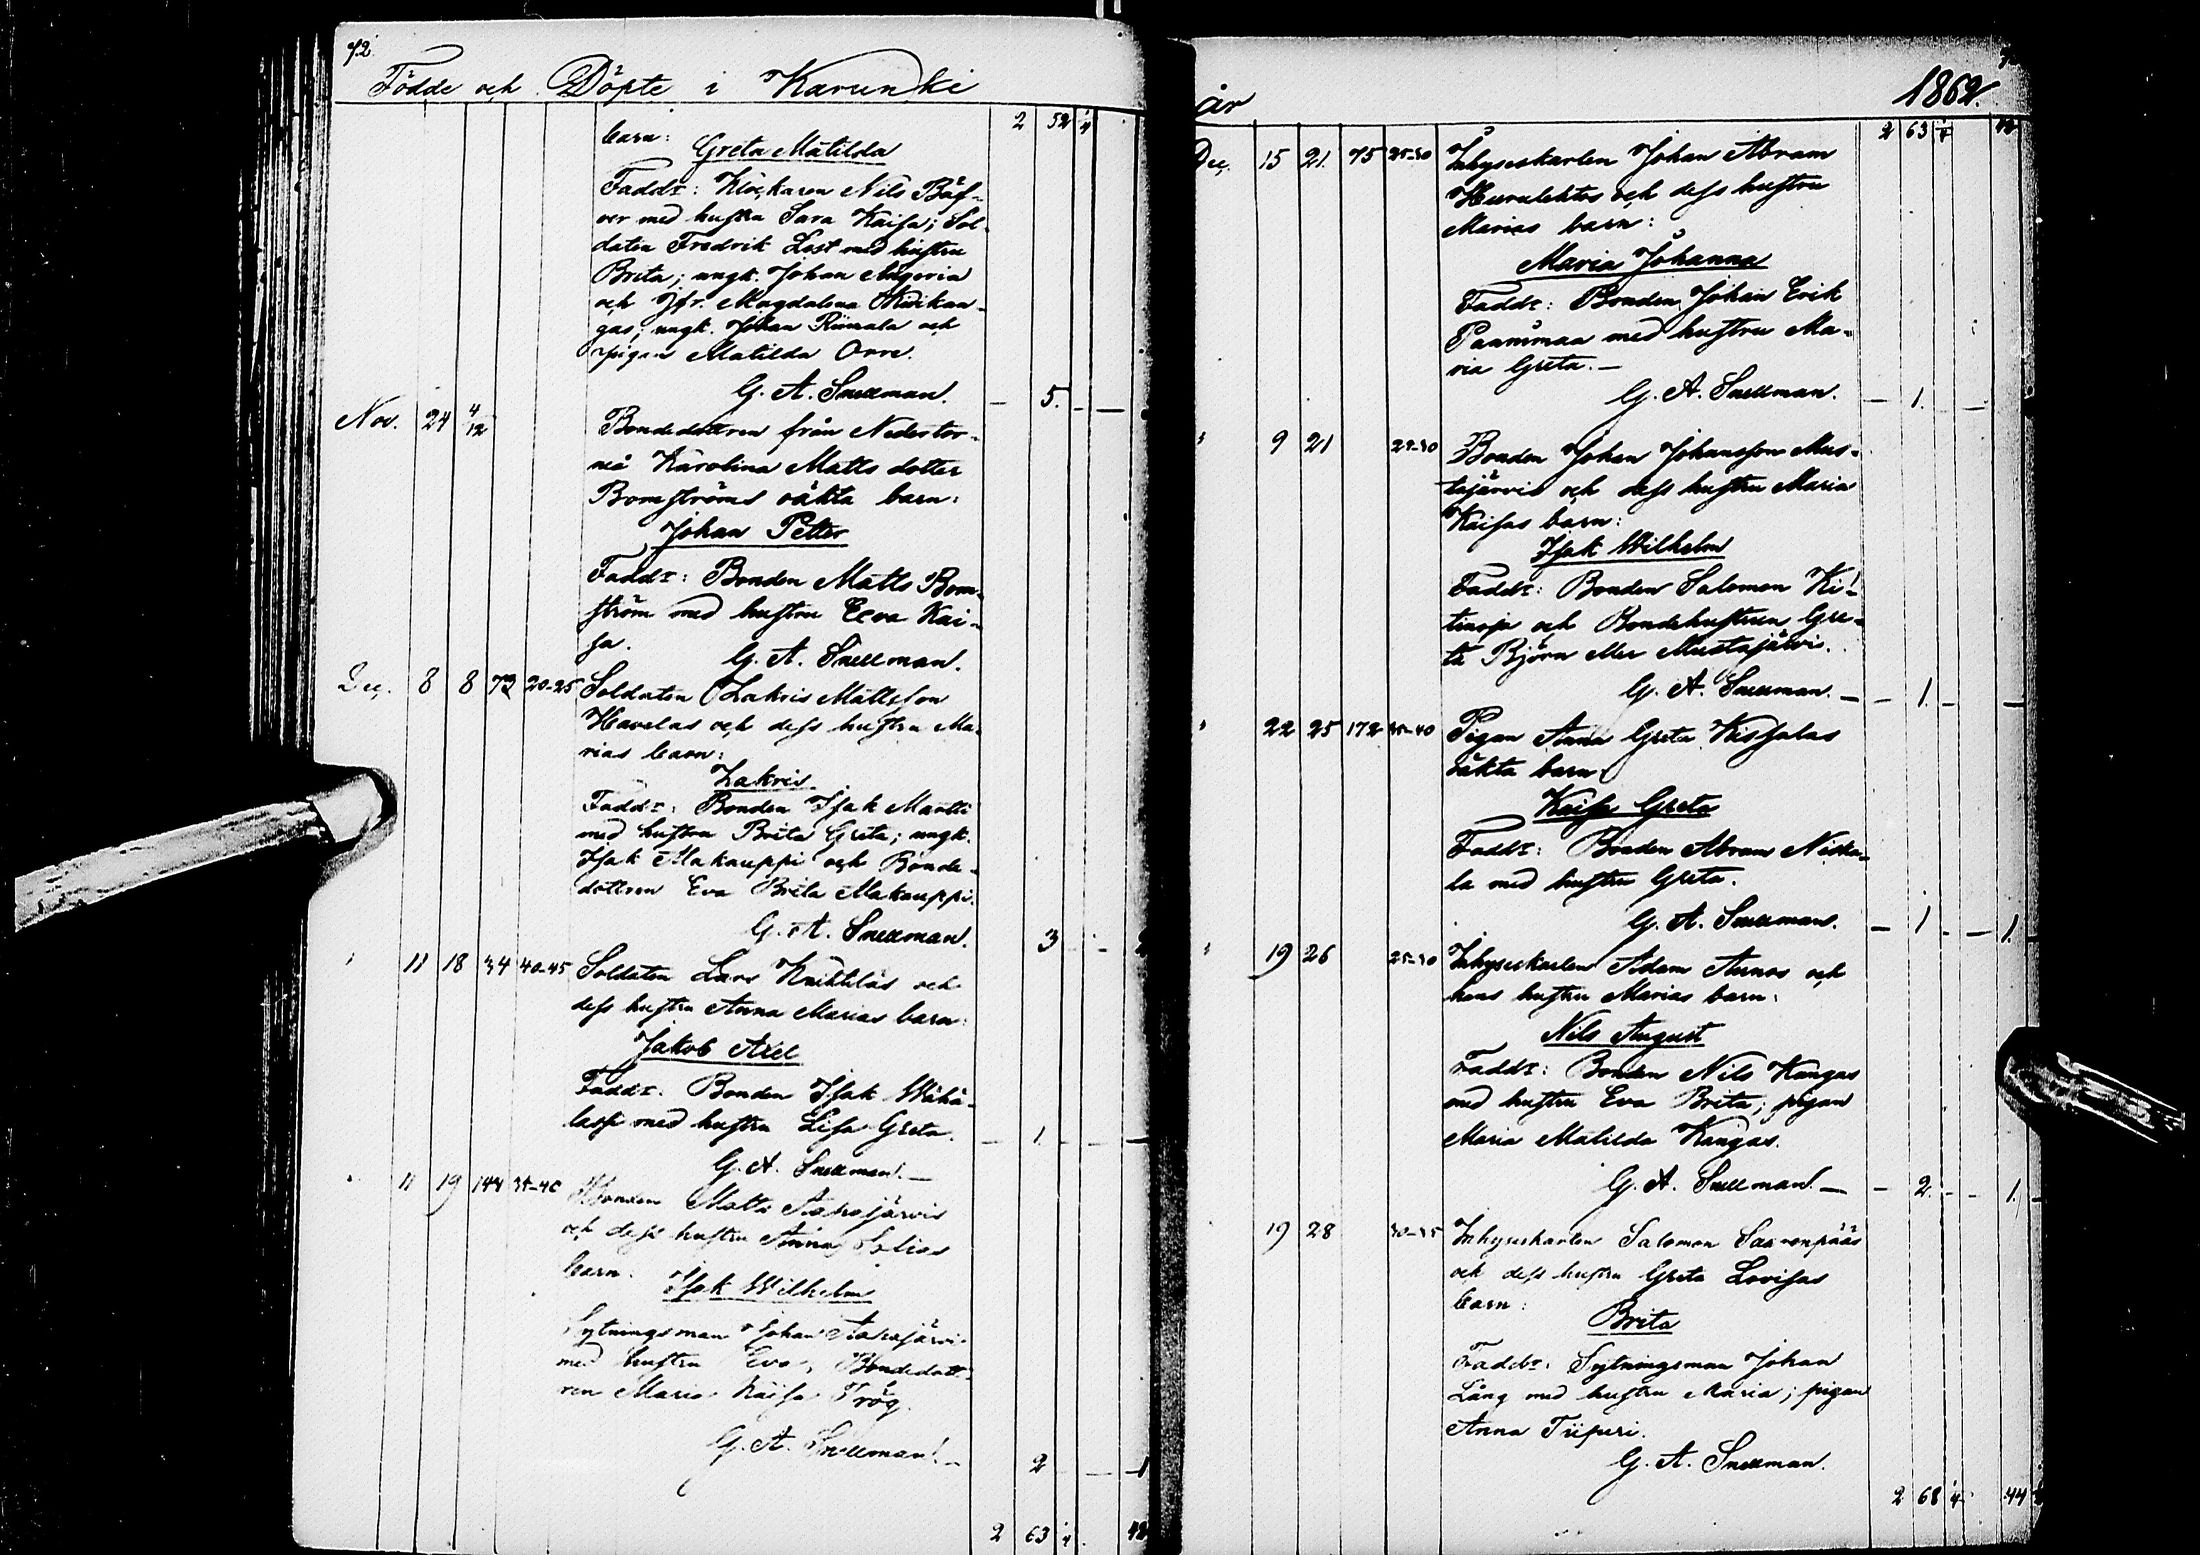 72.
Födde och Döpte i Karunki
2 52 1/4
barn:
Greta Matilda
Faddr: Klockaren Nils Bäf-
ver med hustru Sara Kaisa; Sol-
daten Fredrik Lost med hustru
Brita; ungk. Johan
och Jfr. Magdalena
gas; ungk. Johan Rimala och
pigan Matilda Orre.
G. A. Snellman. — 5. — —
Nov. 24 4/12 Bondedottren från Nedertor-
neå Karolina Matts dotter
Bomströms oäkta barn:
Johan Petter
Faddr: Bonden Matts Bom-
ström med hustru Eva Kai-
sa.
G. A. Snellman.
Dec. 8 8 73 20-25 Soldaten Zakris Mattsson
Havelas och dess hustru Ma-
rias barn:
Zakris.
Faddr: Bonden Isak Martti
med hustru Brita Greta; ungk.
Isak Makauppi och Bonde-
dottren Eva Brita Makauppi.
G. A. Snellman. 3
11 18 34 40-45 Soldaten Lars Knihtilas och
dess hustru Anna Marias barn:
Jakob Axel
Faddr. Bonden Isak Wähä-
laspi med hustru Lisa Greta. — 1. —
G. A. Snellman. —
11 19 144 35-40 Bonden Matts Aapajärvis
och dess hustru Anna Sofias
barn.
Isak Wilhelm
Sytningsman Johan Aapajärvi
med hustru Eva, Bondedott-
ren Maria Kaisa Frög.
G. A. Snellman. —
2 — 1
2 63 1/4 42
år 1862.
2 63 1/4 42
Dec. 15 21. 75 25-30 Inhyseskarlen Johan Abram
Hurulehtos och dess hustru
Marias barn:
Maria Johanna
Faddr: Bonden Johan Erik
Paammaa med hustru Ma-
ria Greta. —
G. A. Snellman. — 1. —
9 21 25-30 Bonden Johan Johansson Mus-
tajärvis och dess hustru Maria
Kaisas barn:
Isak Wilhelm
Faddr: Bonden Salomon Ki-
tinoja och Bondehustrun Gre-
ta Björn eller Mustajärvi.
G. A. Snellman. — 1. — —
22 25 172 35-40 Pigan Anna Greta Kissalas
oäkta barn:
Kaisa Greta
Faddr: Bonden Abram Niska-
la med hustru Greta.
G. A. Snellman. — 1 — 1.
19 26 25-30 Inhyseskarlen Adam Aunos och
hans hustru Marias barn:
Nils August
Faddr: Bonden Nils Kangas
med hustru Eva Brita; pigan
Maria Matilda Kangas.
G. A. Snellman. — 2. — 1.
19 28 30-35 Inhyseskarlen Salomon Saarenpääs
och dess hustru Greta Lovisas
barn:
Brita
Faddr: Sytningsman Johan
Lång med hustru Maria; pigan
Anna Tiipuri.
G. A. Snellman.
2 68 1/4 44